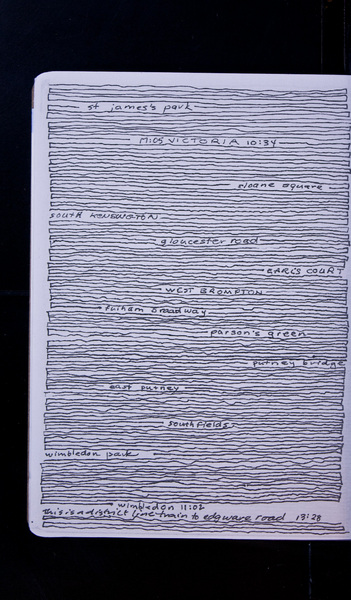 st james's park
miss VICTORIA 10:34
sloane square
SOUTH KENSINGTON
gloucester road
EARL'S COURT
WEST BROMPTON
fulham broadway
parson's green
putney bridge
east putney
southfields
wimbledon park
wimbledon 11:02
this is a district line train to edgware road 13:28